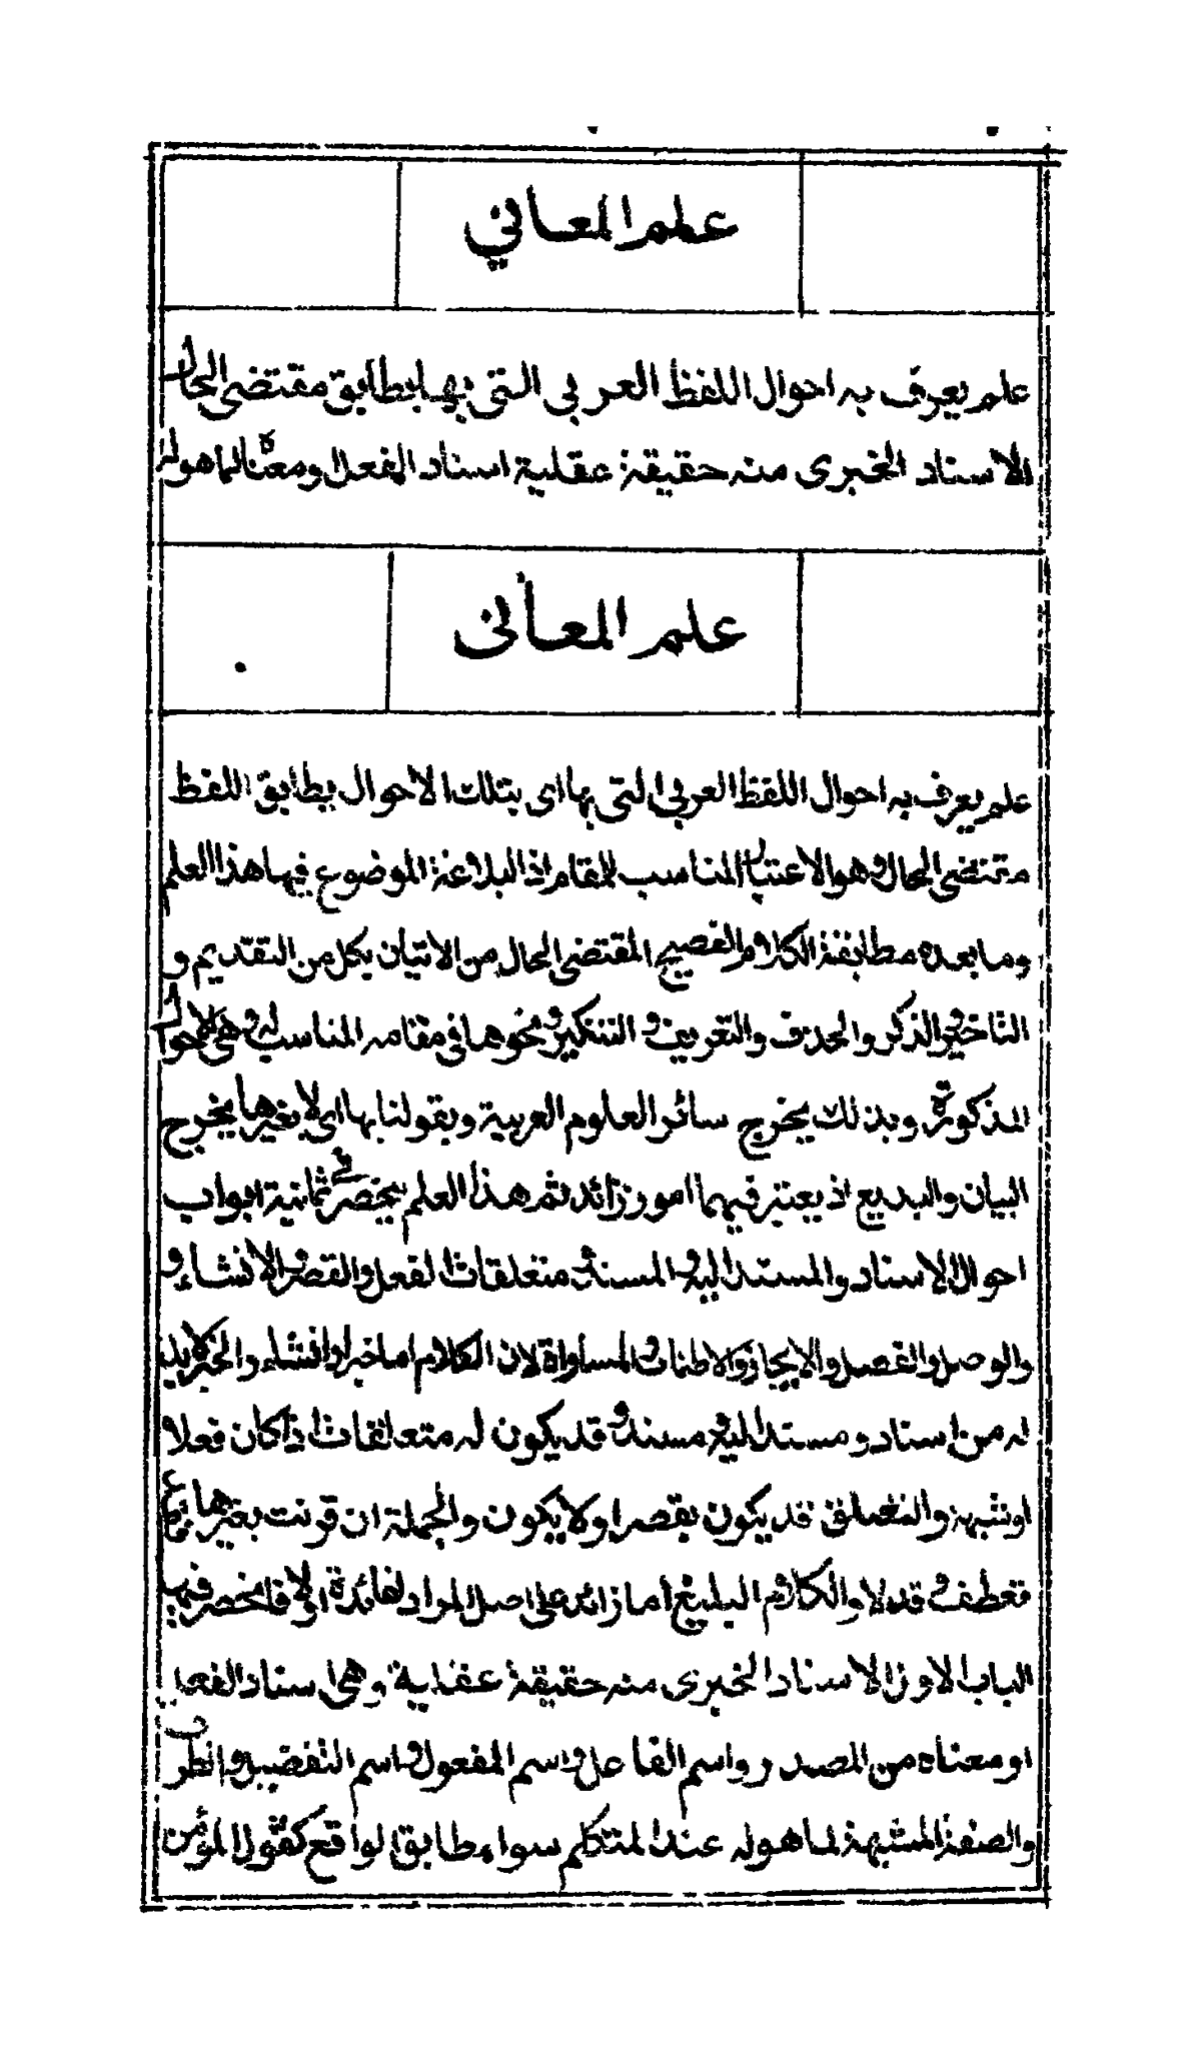 علم المعاني
علم يعرف به احوال اللفظ العربي التي بها يطابق مقتضى الحال
الاسناد الخبرى منه حقيقة عقلية اسناد الفعل او معناه لما هو له
علم المعاني
علم يعرف به احوال اللفظ العربي التي بها اى بتلك الاحوال يطابق اللفظ
مقتضى الحال وهو الاعتبار المناسب للمقام اذ البلاغة الموضوع فيها هذا العلم
وما بعده مطابقة الكلام الفصيح المقتضى الحال من الاتيان بكل من التقديم و
التاخير والذكر والحذف والتعريف والتنكير ونحوها فى مقامه المناسب له وهى الاحوال
المذكورة وبذلك يخرج سائر العلوم العربية وبقولنا بها اى لا بغيرها يخرج
البيان والبديع اذ يعتبر فيهما امور زائد ثم هذا العلم ينحصر فى ثمانية ابواب
احوال الاسناد والمسند اليه والمسند ومتعلقات الفعل والقصر والانشاء و
والوصل والفصل والايجاز والاطناب والمساواة لان الكلام اما خبر او انشاء والخبر لا بد
له من اسناد ومسند اليه ومسند وقد يكون له متعلقات اذا كان فعلا
او شبهه والتعلق قد يكون بقصر او لا يكون والجملة ان قرنت بغيرها
فتعطف وقد لا والكلام البليغ اما زائد على اصل المراد لفائدة او لا فانحصر فيها
الباب الاول الاسناد الخبرى منه حقيقة عقلية وهى اسناد الفعل
او معناه من المصدر واسم الفاعل واسم المفعول واسم التفضيل والظرف
والصفة المشبهة لما هو له عند المتكلم سواء طابق الواقع كقول المؤمن